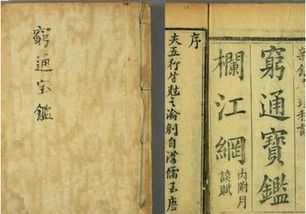 窮通宝鑑
窮通寶鑑
欄江網
內附月
談賦
序
夫五行生尅之論別自漢儒至唐